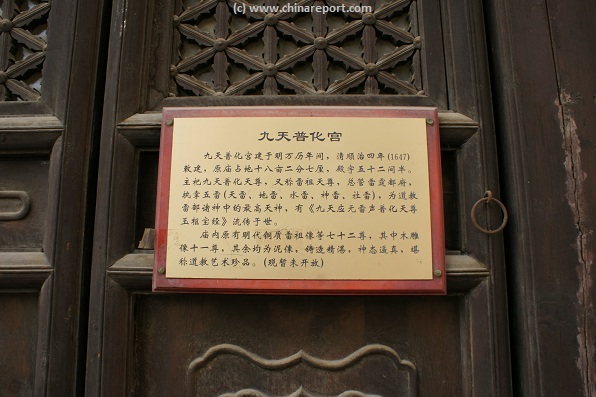 (c) www.chinareport.com
九天普化宫
九天普化宫建于明万历年间，清顺治四年(1647)
敕建，原庙占地十八亩二分七厘，殿宇五十二间半。
主祀九天普化天尊，又称雷祖天尊，总管雷霆都府，
执掌五雷(天雷、地雷、水雷、神雷、社雷)，为道教
雷部诸神中的最高天神，有《九天应元雷声普化天尊
玉祖宝经》流传于世。
庙内原有明代铜质雷祖像等七十二尊，其中木雕
像十一尊，其余均为泥像，铸造精湛，神态逼真，堪
称道教艺术珍品。(现暂未开放)